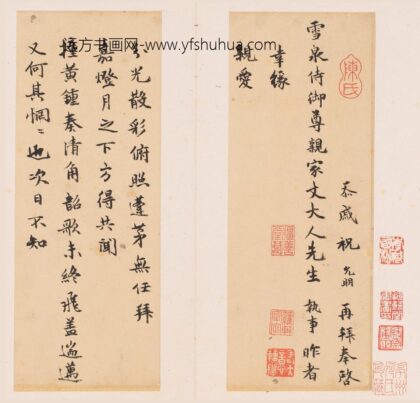 忝戚祝允明再拜奉啓
雪泉侍御尊親家丈大人先生執事昨者
幸緣
親愛
分光散彩俯照蓬茅無任拜
嘉燈月之下方得共聞
撞黃鍾奏清角韶歌未終飛蓋遄邁
又何其惘惘也次日不知
陳氏
东方书画网-www.yfshuhua.com